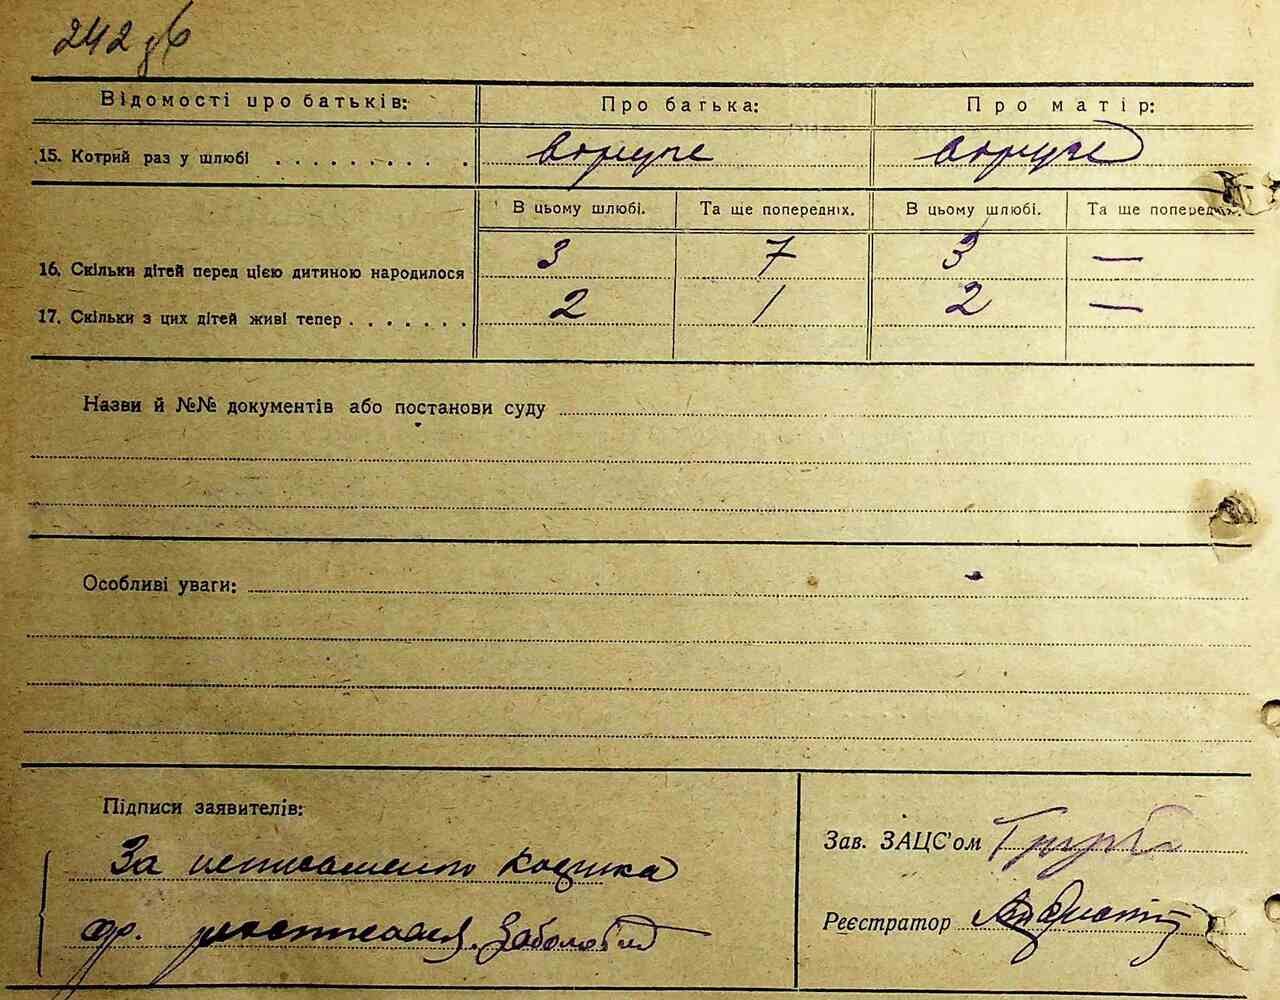 242 зв
Відомості про батьків: Про батька: Про матір:
15. Котрий раз у шлюбі . . . . . . . . . . вдруге вдруге
В цьому шлюбі. Та ще попередніх. В цьому шлюбі. Та ще попередніх.
16. Скільки дітей перед цією дитиною народилося 3 7 3 —
17. Скільки з цих дітей живі тепер . . . . . . . 2 1 2 —
Назви й №№ документів або постанови суду
Особливі уваги:
Підписи заявителів:
За
гр.
Зав. ЗАЦС'ом
Реєстратор